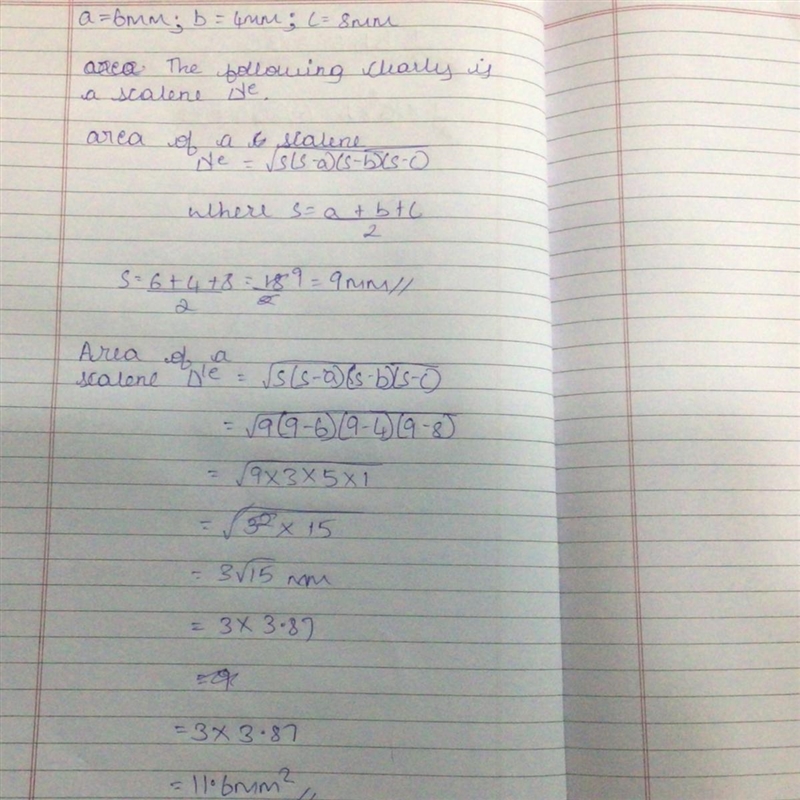 a=6mm; b=4mm; c=8mm
area The following clearly is
a scalene Δle.
area of a scalene
Δle = √s(s-a)(s-b)(s-c)
where s= a+b+c/2
s= 6+4+8/2 = 18/2 9 = 9mm//
Area of a
scalene Δle = √s(s-a)(s-b)(s-c)
= √9(9-6)(9-4)(9-8)
= √9×3×5×1
= √3²×15
= 3√15 mm
= 3×3.87
=9
=3×3.87
=11.6mm²//